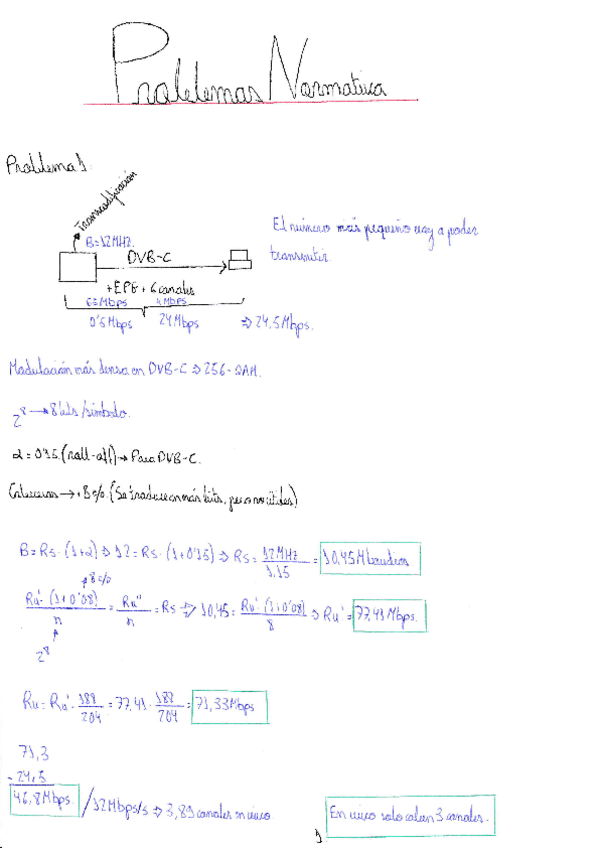 Problemas Normativa
Problema 1.
Transcodificación
B=12MHz.
DVB-C
+EPG + 6 canales
0'5Mbps 24Mbps ⇒ 24,5Mbps.
El número más pequeño voy a poder
transmitir.
Modulación más densa en DVB-C ⇒ 256-QAM.
2^8 → 8 bits/símbolo.
α = 0'15. (roll-off) → Para DVB-C.
Cabeceras → +8%. (Se traduce en más bits, pero no útiles)
B = Rs · (1+α) ⇒ 12 = Rs · (1+0'15) ⇒ Rs = 12MHz / 1.15 = 10,45 Mbaudios
+8%
Ru' · (1+0'08) / n = Ru'' / n = Rs ⇒ 10,45 = Ru' · (1+0'08) / 8 ⇒ Ru' = 77,41 Mbps.
2^8
Ru = Ru' · 188 / 204 = 77,41 · 188 / 204 = 71,33 Mbps
71,3
- 24,5
46,8 Mbps. / 12Mbps/s ⇒ 3,89 canales en cinco
En cinco solo caben 3 canales.
1